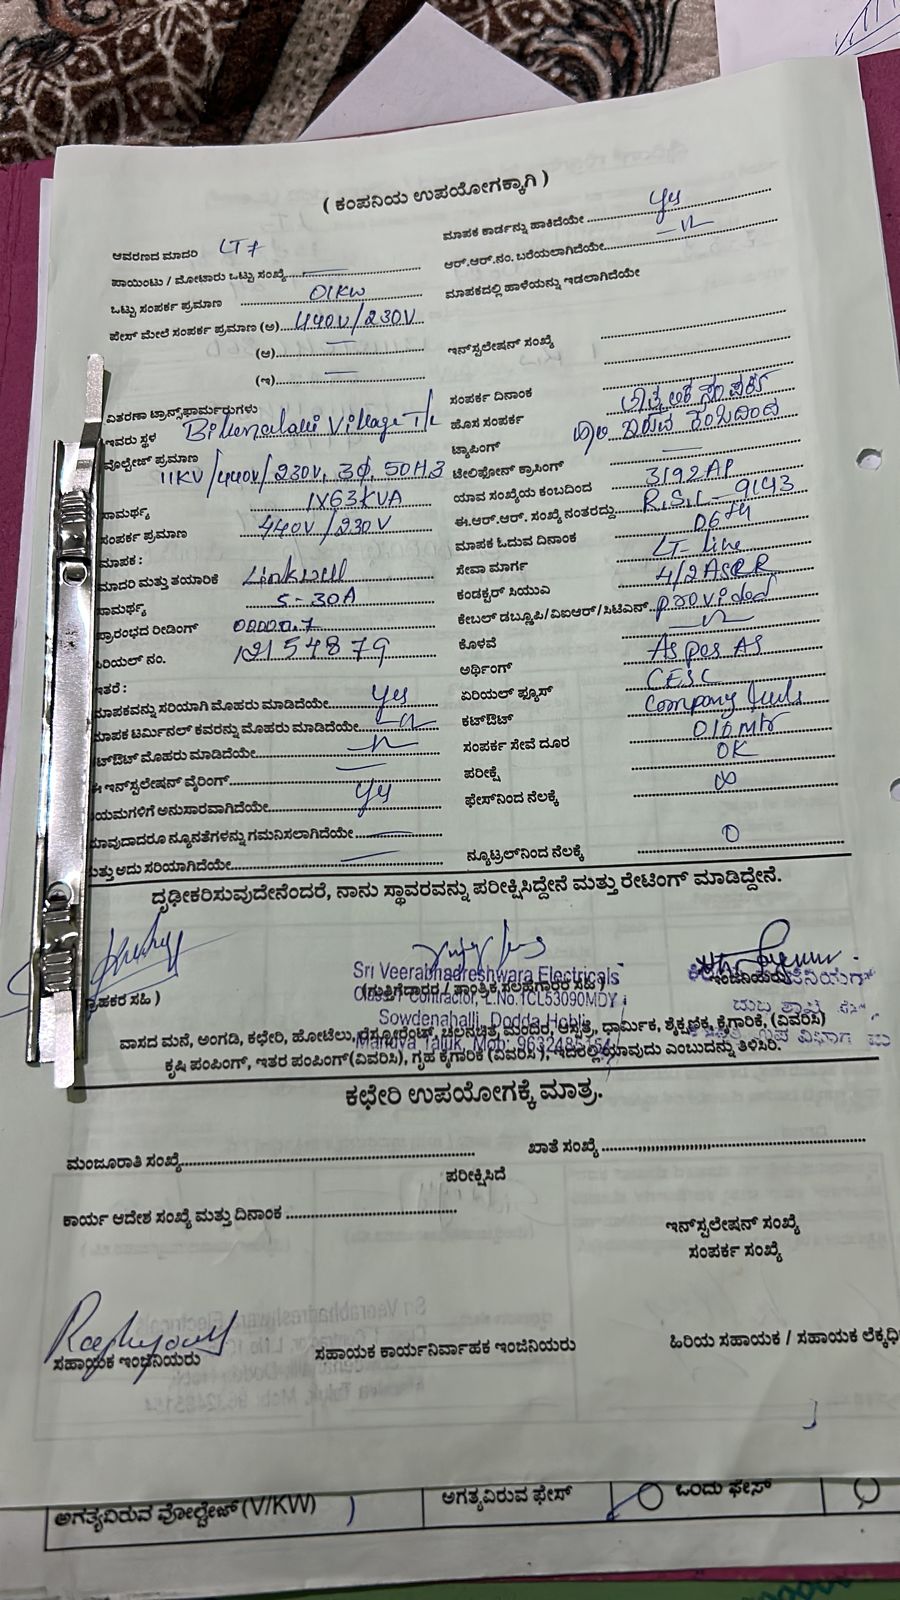 ( ಕಂಪನಿಯ ಉಪಯೋಗಕ್ಕಾಗಿ )
ಆವರಣದ ಮಾದರಿ LT7
ಪಾಯಿಂಟು / ಮೋಟಾರು ಒಟ್ಟು ಸಂಖ್ಯೆ
ಒಟ್ಟು ಸಂಪರ್ಕ ಪ್ರಮಾಣ 01KW
ಪೇಸ್ ಮೇಲೆ ಸಂಪರ್ಕ ಪ್ರಮಾಣ (ಅ) 440V/230V
(ಆ)
(ಇ)
ವಿತರಣಾ ಟ್ರಾನ್ಸ್‌ಫಾರ್ಮರುಗಳು
ಇವರು ಸ್ಥಳ Village T/c
ವೊಲ್ಟೇಜ್ ಪ್ರಮಾಣ 11KV/440V/230V, 3Φ, 50H3
ಸಾಮರ್ಥ್ಯ 1X63KVA
ಸಂಪರ್ಕ ಪ್ರಮಾಣ 440V/230V
ಮಾಪಕ :
ಮಾದರಿ ಮತ್ತು ತಯಾರಿಕೆ Linkwell
ಸಾಮರ್ಥ್ಯ 5-30A
ಪ್ರಾರಂಭದ ರೀಡಿಂಗ್ 00000.7
ಸಿರಿಯಲ್ ನಂ. 12154879
ಇತರೆ :
ಮಾಪಕವನ್ನು ಸರಿಯಾಗಿ ಮೊಹರು ಮಾಡಿದೆಯೇ Yes
ಮಾಪಕ ಟರ್ಮಿನಲ್ ಕವರನ್ನು ಮೊಹರು ಮಾಡಿದೆಯೇ
ಕಟ್‌ಔಟ್ ಮೊಹರು ಮಾಡಿದೆಯೇ
ಈ ಇನ್‌ಸ್ಟಲೇಷನ್ ವೈರಿಂಗ್
ನಿಯಮಗಳಿಗೆ ಅನುಸಾರವಾಗಿದೆಯೇ Yes
ಯಾವುದಾದರೂ ನ್ಯೂನತೆಗಳನ್ನು ಗಮನಿಸಲಾಗಿದೆಯೇ
ಮತ್ತು ಅದು ಸರಿಯಾಗಿದೆಯೇ
ಮಾಪಕ ಕಾರ್ಡನ್ನು ಹಾಕಿದೆಯೇ Yes
ಆರ್.ಆರ್.ನಂ. ಬರೆಯಲಾಗಿದೆಯೇ
ಮಾಪಕದಲ್ಲಿ ಹಾಳೆಯನ್ನು ಇಡಲಾಗಿದೆಯೇ
ಇನ್‌ಸ್ಟಲೇಷನ್ ಸಂಖ್ಯೆ
ಸಂಪರ್ಕ ದಿನಾಂಕ
ಹೊಸ ಸಂಪರ್ಕ
ಟ್ಯಾಪಿಂಗ್
ಟೆಲಿಫೋನ್ ಕ್ರಾಸಿಂಗ್
ಯಾವ ಸಂಖ್ಯೆಯ ಕಂಬದಿಂದ 3192AP
ಈ.ಆರ್.ಆರ್. ಸಂಖ್ಯೆ ನಂತರದ್ದು R.S.L-9143
ಮಾಪಕ ಓದುವ ದಿನಾಂಕ 06th
ಸೇವಾ ಮಾರ್ಗ LT-line
ಕಂಡಕ್ಟರ್ ಸಿಯುವಿ 4/2 ASCR
ಕೇಬಲ್ ಡಬ್ಲೂಪಿ/ವಿಐಆರ್/ಸಿಟಿಎನ್ provided
ಕೊಳವೆ
ಅರ್ಥಿಂಗ್ As per AS
ಏರಿಯಲ್ ಪ್ಯೂಸ್ CESC
ಕಟ್‌ಔಟ್ Company
ಸಂಪರ್ಕ ಸೇವೆ ದೂರ 010 Mtr
ಪರೀಕ್ಷೆ OK
ಫೇಸ್‌ನಿಂದ ನೆಲಕ್ಕೆ ∞
ನ್ಯೂಟ್ರಲ್‌ನಿಂದ ನೆಲಕ್ಕೆ 0
ದೃಢೀಕರಿಸುವುದೇನೆಂದರೆ, ನಾನು ಸ್ಥಾವರವನ್ನು ಪರೀಕ್ಷಿಸಿದ್ದೇನೆ ಮತ್ತು ರೇಟಿಂಗ್ ಮಾಡಿದ್ದೇನೆ.
ಗ್ರಾಹಕರ ಸಹಿ )
(ಗುತ್ತಿಗೆದಾರರ / ತಾಂತ್ರಿಕ ಸಲಹೆಗಾರರ ಸಹಿ)
Sri Veerabhadreshwara Electricals
Class 1 Contractor, L.No.1CL53090MDY
Sowdenahalli, Dodda Hobli
Mandya Taluk, Mob: 9632485154
ವಾಸದ ಮನೆ, ಅಂಗಡಿ, ಕಛೇರಿ, ಹೋಟೆಲು, ರೆಸ್ಟೋರೆಂಟ್, ಚಲನಚಿತ್ರ ಮಂದಿರ, ಆಸ್ಪತ್ರೆ, ಧಾರ್ಮಿಕ, ಶೈಕ್ಷಣಿಕ, ಕೈಗಾರಿಕೆ, (ವಿವರಿಸಿ)
ಕೃಷಿ ಪಂಪಿಂಗ್, ಇತರ ಪಂಪಿಂಗ್(ವಿವರಿಸಿ), ಗೃಹ ಕೈಗಾರಿಕೆ (ವಿವರಿಸಿ ), ಇದರಲ್ಲಿ ಯಾವುದು ಎಂಬುದನ್ನು ತಿಳಿಸಿರಿ.
ಕಛೇರಿ ಉಪಯೋಗಕ್ಕೆ ಮಾತ್ರ.
ಮಂಜೂರಾತಿ ಸಂಖ್ಯೆ
ಖಾತೆ ಸಂಖ್ಯೆ
ಪರೀಕ್ಷಿಸಿದೆ
ಕಾರ್ಯ ಆದೇಶ ಸಂಖ್ಯೆ ಮತ್ತು ದಿನಾಂಕ
ಇನ್‌ಸ್ಟಲೇಷನ್ ಸಂಖ್ಯೆ
ಸಂಪರ್ಕ ಸಂಖ್ಯೆ
ಸಹಾಯಕ ಇಂಜಿನಿಯರು
ಸಹಾಯಕ ಕಾರ್ಯನಿರ್ವಾಹಕ ಇಂಜಿನಿಯರು
ಹಿರಿಯ ಸಹಾಯಕ / ಸಹಾಯಕ ಲೆಕ್ಕಧಿ
ಅಗತ್ಯವಿರುವ ವೋಲ್ಟೇಜ್ (V/KW)
ಅಗತ್ಯವಿರುವ ಫೇಸ್
ಒಂದು ಫೇಸ್